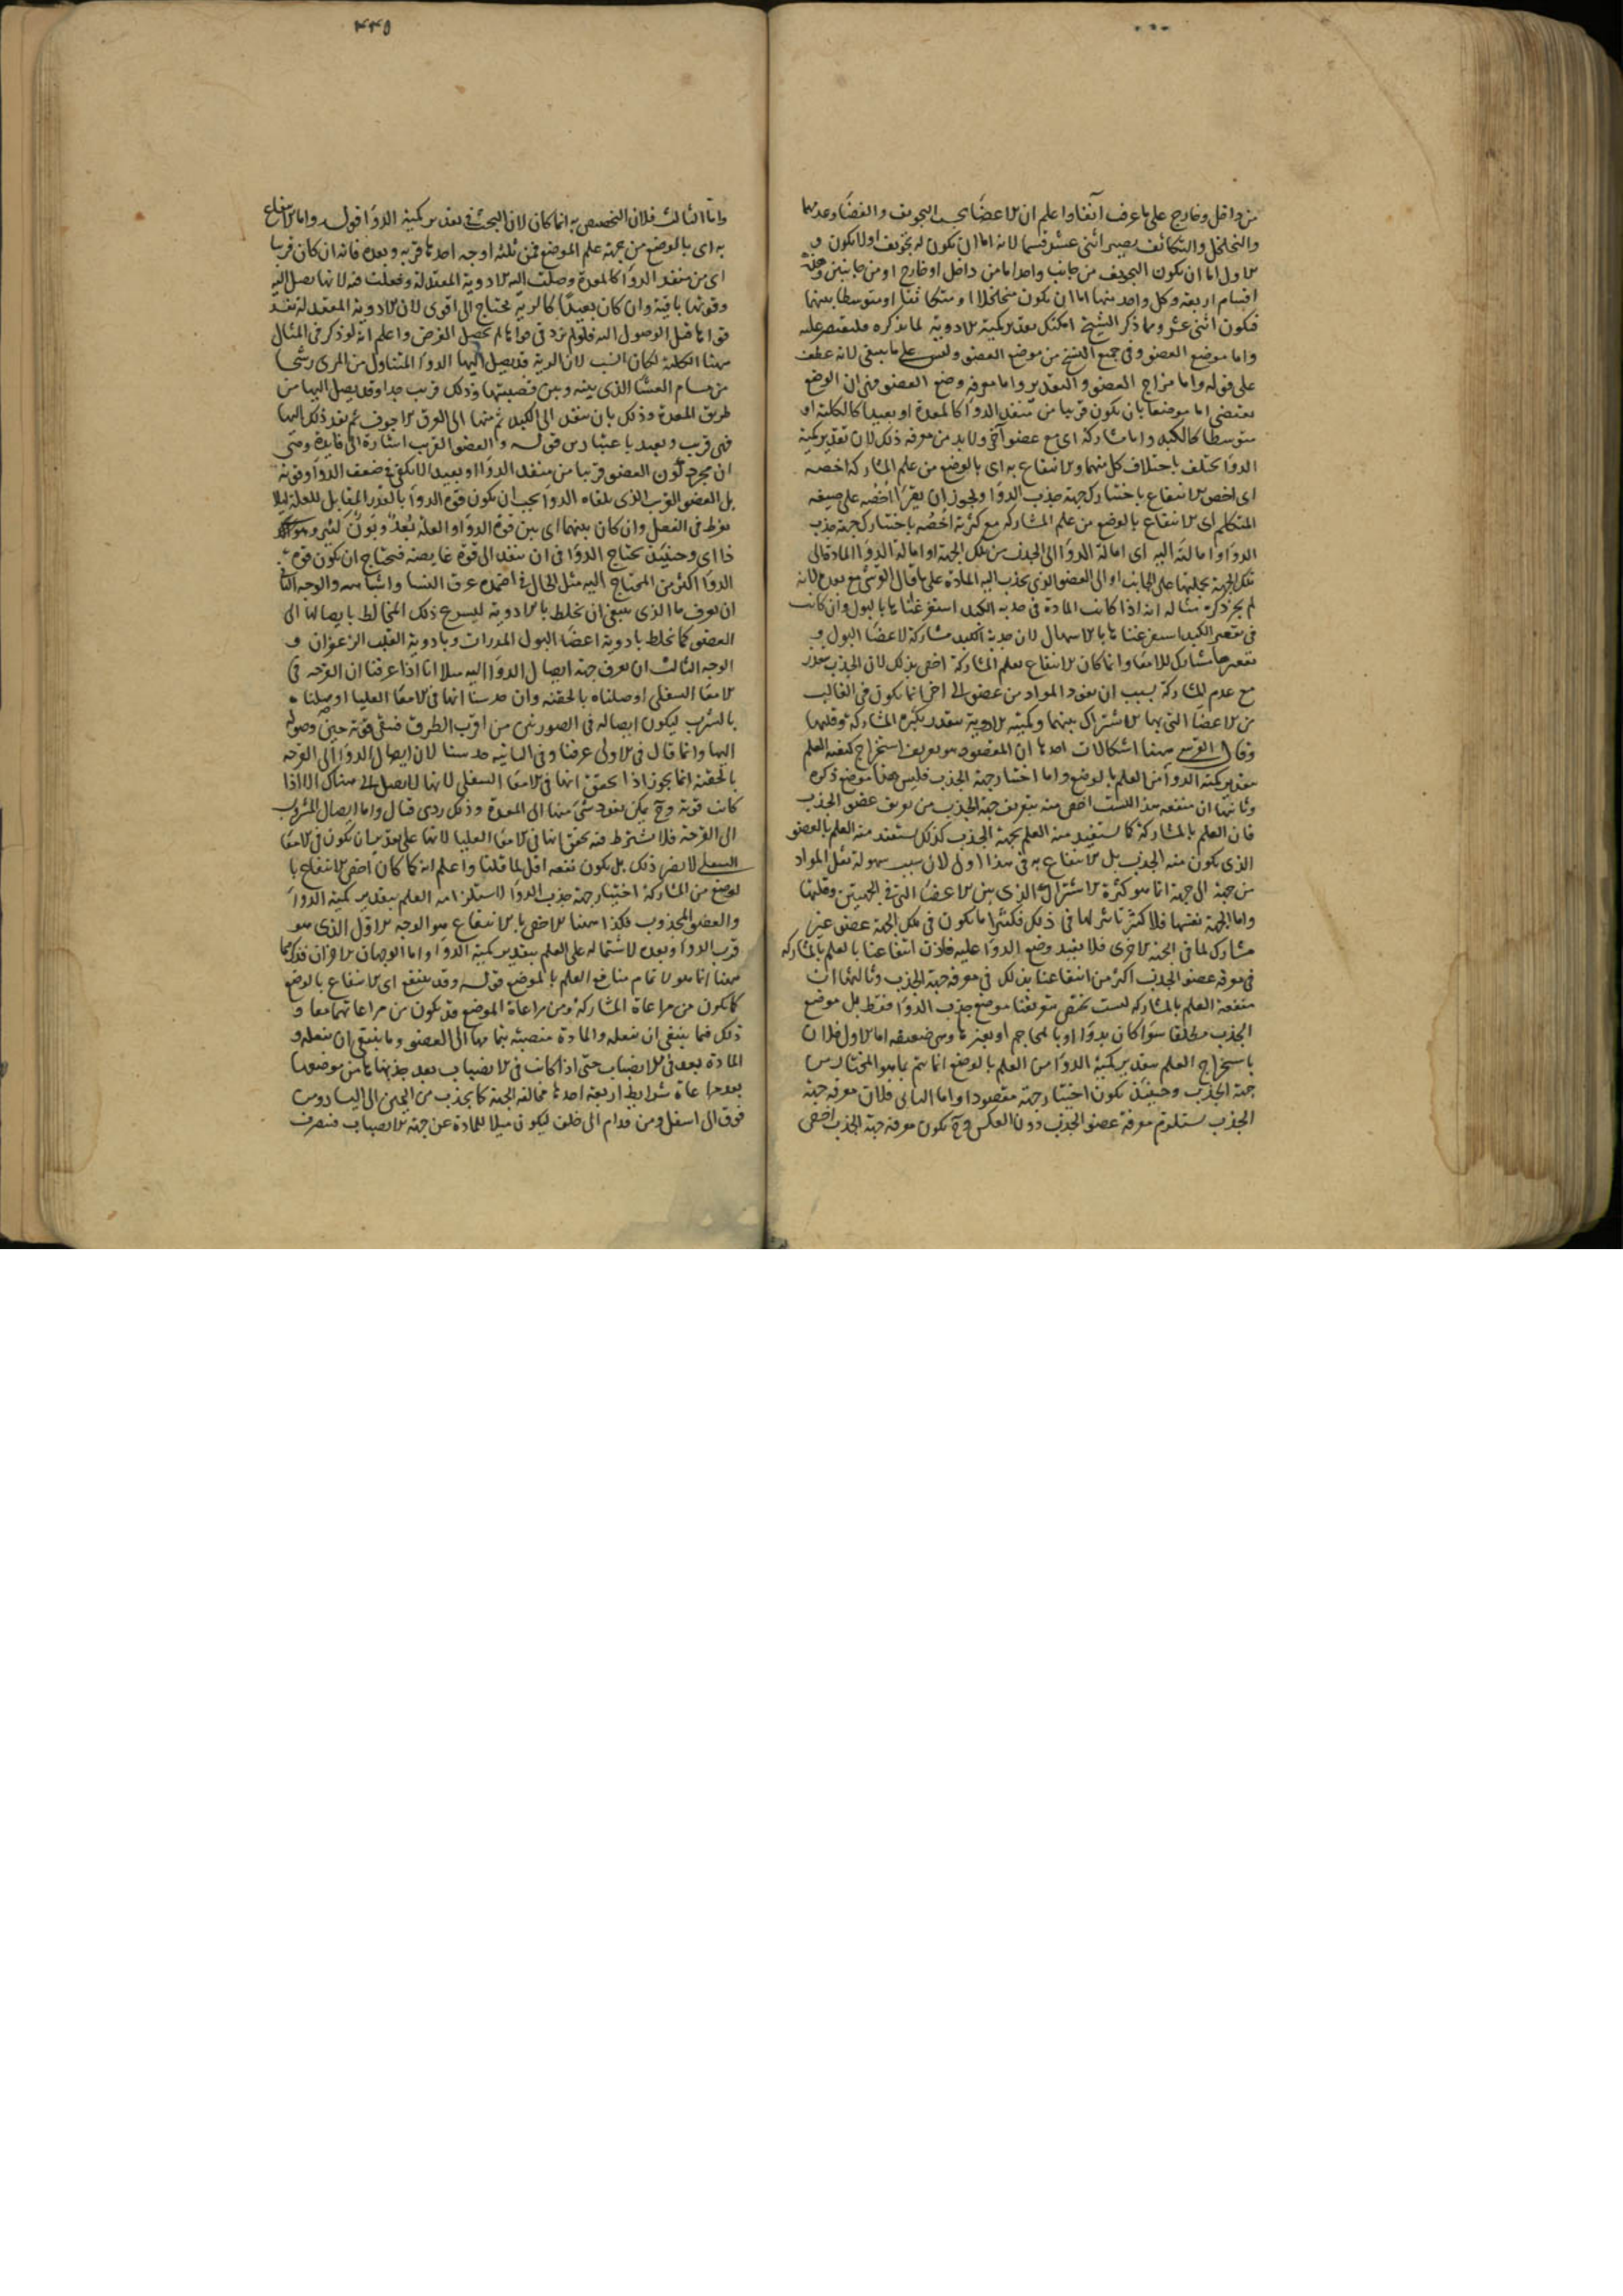 من داخل وخارج على ما عرف آنفا واعلم ان الاعضا بحسب التجويف والفضا وعدمهما
والتخلخل والتكاثف يصير اثنى عشر قسما لانه اما ان يكون له تجويف او لا يكون و
الاول اما ان يكون التجويف من جانب واحد اما من داخل او خارج او من جانبين
اقسام اربعة وكل واحد منها اما ان يكون متخلخلا او متكاثفا او متوسطا بينهما
فيكون اثنى عشر ومما ذكر الشيخ امكنك تقدير كمية الادوية لما يذكره فلنقتصر عليه
واما موضع العضو وفى جميع النسخ من موضع العضو وليس على ما ينبغى لانه عطف
على قوله واما مزاج العضو والتقدير واما معرفة وضع العضو فهى ان الوضع
يقتضى اما موضعا بان يكون قريبا من منفذ الدوا كالمعدة او بعيدا كالكلية او
متوسطا كالكبد واما مشاركة اى مع عضو آخر ولا بد من معرفة ذلك لان تقدير كمية
الدوا يختلف باختلاف كل منهما والانتفاع به اى بالوضع من علم المشاركة اخصه
اى اخص الانتفاع باختيارك جهة جذب الدوا ويجوز ان يقرا اخصه على صيغة
المتكلم اى الانتفاع بالوضع من علم المشاركة مع كثرته اخصه باختيارك جهة جذب
الدوا وامالته اليه اى امالة الدوا الى الجذب من تلك الجهة او امالة الدوا المادة الى
تلك الجهة
لم يجز ذكره مثاله انه اذا كانت المادة فى حدبة الكبد استفرغناها بالبول وان كانت
فى مقعر الكبد استفرغناها بالاسهال لان حدبة الكبد مشاركة لاعضا البول و
مقعرها مشارك للامعا وانما كان الانتفاع بعلم المشاركة اخص بذلك لان الجذب يتعذر
مع عدم المشاركة بسبب ان نفوذ المواد من عضو الى آخر انما يكون فى الغالب
من الاعضا التى بها الاشتراك بينهما وكمية الادوية يتقدر بكثرة المشاركة وقلتها
وقال القرشى ههنا اشكالات احدها ان المقصود هو تعريف استخراج كيفية العلم
بتقدير كمية الدوا من العلم بالوضع واما اختيار جهة الجذب فليس هذا موضع ذكره
وثانيها ان منفعة هذا ليست اخص منه بتعريف جهة الجذب من تعريف عضو الجذب
فان العلم بالمشاركة كما يستفيد منه العلم بجهة الجذب كذلك يستفيد منه العلم بالعضو
الذى يكون منه الجذب بل الانتفاع به فى هذا اولى لان سبب سهولة نقل المواد
من جهة الى جهة انما هو كثرة الاشتراك الذى بين الاعضا التى فى الجهتين وقلتها
واما الجهة نفسها فلا كثير تاثير لها فى ذلك فكثيرا ما يكون فى تلك الجهة عضو غير
مشارك لما فى الجهة الاخرى فلا يفيد وضع الدوا عليه فاذن انتفاعنا بالعلم بالمشاركة
فى معرفة عضو الجذب اكثر من انتفاعنا بذلك فى معرفة جهة الجذب وثالثها ان
منفعة العلم بالمشاركة ليست تختص بتعريفنا موضع جذب الدوا فقط بل موضع
الجذب مطلقا سوا كان بدوا او بالمحاجم او بغيرها وهى ضعيفة اما الاول فلان
باستخراج العلم بتقدير كمية الدوا من العلم بالوضع انما يتم بما هو المختار من
جهة الجذب وحينئذ يكون اختيار جهة مقصودا واما الثانى فلان معرفة جهة
الجذب يستلزم معرفة عضو الجذب دون العكس وح يكون معرفة جهة الجذب اخص
٤٤٥
واما الثالث فلان التخصيص به انما كان لان البحث فى تقدير كمية الدوا قوله واما الانتفاع
به اى بالوضع من جهة علم الموضع فمن ثلثة اوجه احدها قربه وبعده فانه ان كان قريبا
اى من منفذ الدوا كالمعدة وصلت اليه الادوية المعتدلة وفعلت فيه لانها يصل اليه
وقوتها باقية وان كان بعيدا كالرية يحتاج الى اقوى لان الادوية المعتدلة تفسد
قواها قبل الوصول اليه فلو لم يزد فى قواها لم يحصل الغرض واعلم انه لو ذكر فى المثال
ههنا الكلية لكان انسب لان الرية قد يصل اليها الدوا المتناول من المرى رشحا
من مسام الغشا الذى بينه وبين قصبتها وذلك قريب جدا وقد يصل اليها من
طريق المعدة وذلك بان ينفذ الى الكبد ثم منها الى العرق الاجوف ثم بعد ذلك اليها
فهى قريب وبعيد باعتبارين قوله والعضو القريب اشارة الى فايدة وهى
ان مجرد كون العضو قريبا من منفذ الدوا او بعيدا لا يكفى فى ضعف الدوا وقوته
بل العضو القريب الذى يلقاه الدوا يجب ان يكون قوة الدوا بالقدر المقابل للعلة لئلا
يفرط فى الفعل وان كان بينهما اى بين قوة الدوا والعلة بعد وبون كثير
حينئذ يحتاج الدوا فى ان ينفذ الى قوة غايصة فيحتاج ان يكون قوة
الدوا اكثر من المحتاج اليه مثل الحال فى اضمدة عرق النسا واشباهه والوجه الثانى
ان يعرف ما الذى ينبغى ان يخلط بالادوية ليسرع ذلك المخالط بايصالها الى
العضو كما يخلط بادوية اعضا البول المدرات وبادوية القلب الزعفران و
الوجه الثالث ان يعرف جهة ايصال الدوا اليه مثلا انا اذا عرفنا ان القرحة فى
الامعا السفلى اوصلناه بالحقنة وان حدسنا انها فى الامعا العليا اوصلناه
بالشرب ليكون ايصاله فى الصورتين من اقرب الطرق فيبقى قوته حين وصوله
اليها وانما قال فى الاولى عرفنا وفى الثانية حدسنا لان ايصال الدوا الى القرحة
بالحقنة انما يجوز اذا تحقق انها فى الامعا السفلى لانها لا يصل الى هناك الا اذا
كانت قوية وح يمكن نفوذ شئ منها الى المعدة وذلك ردى قتال واما ايصال المشروب
الى القرحة فلا يشترط فيه تحقق انها فى الامعا العليا لانها على تقدير ان يكون فى الامعا
السفلى لا يضر ذلك بل يكون نفعه اقل لما قلنا واعلم انه كما كان اخص الانتفاع با
لوضع من المشاركة اختيار جهة جذب الدوا لاستلزامه العلم بتقدير كمية الدوا
والعضو المجذوب فكذا ههنا الاخص بالانتفاع هو الوجه الاول الذى هو
قرب الدوا وبعده لاشتماله على العلم بتقدير كمية الدوا واما الوجهان الاخران فذكرهما
ههنا انما هو لاتمام منافع العلم بالموضع قوله وقد ينتفع اى الانتفاع بالوضع
كما يكون من مراعاة المشاركة ومن مراعاة الموضع قد يكون من مراعاتهما معا و
ذلك فيما ينبغى ان يفعله والمادة منصبة بتمامها الى العضو وما ينبغى ان يفعله و
المادة بعد فى الانصباب حتى اذا كانت فى الانصباب بعد جذبناها من موضعها
بعد مراعاة شرايط اربعة احدها مخالفة الجهة كما يجذب من اليمين الى اليسار ومن
فوق الى اسفل ومن قدام الى خلف ليكون ميلا للمادة عن جهة الانصباب فينصرف